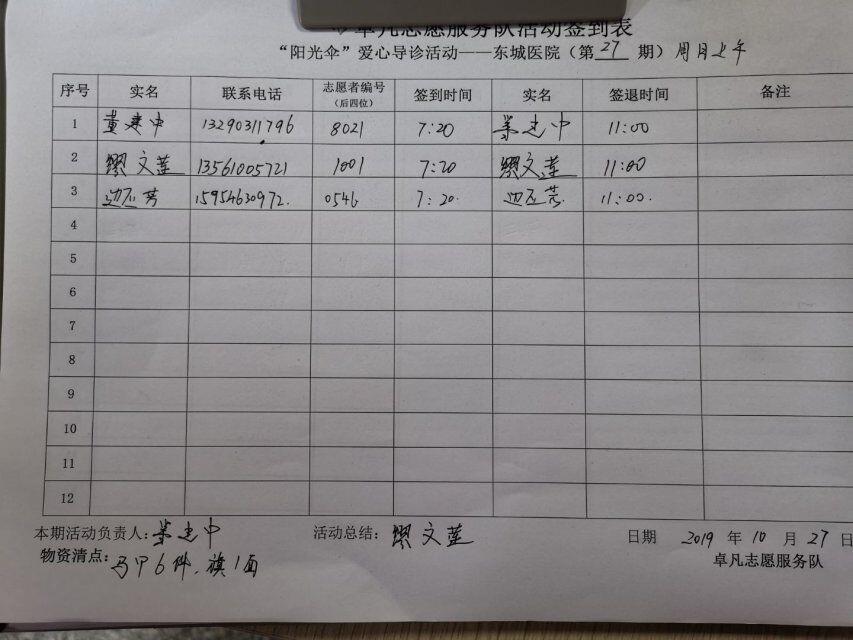 卓凡志愿服务队活动签到表
“阳光伞”爱心导诊活动——东城医院（第27期）周日上午
序号 实名 联系电话 志愿者编号（后四位） 签到时间 实名 签退时间 备注
1 黄建中 13290311796 8021 7:20 建中 11:00
2 缪文莲 13561005721 1001 7:20 缪文莲 11:00
3 边 芳 15954630972. 0546 7:20. 边 芳 11:00.
4
5
6
7
8
9
10
11
12
本期活动负责人: 建中 活动总结: 缪文莲 日期 2019 年 10 月 27 日
物资清点: 马甲6件、旗1面 卓凡志愿服务队